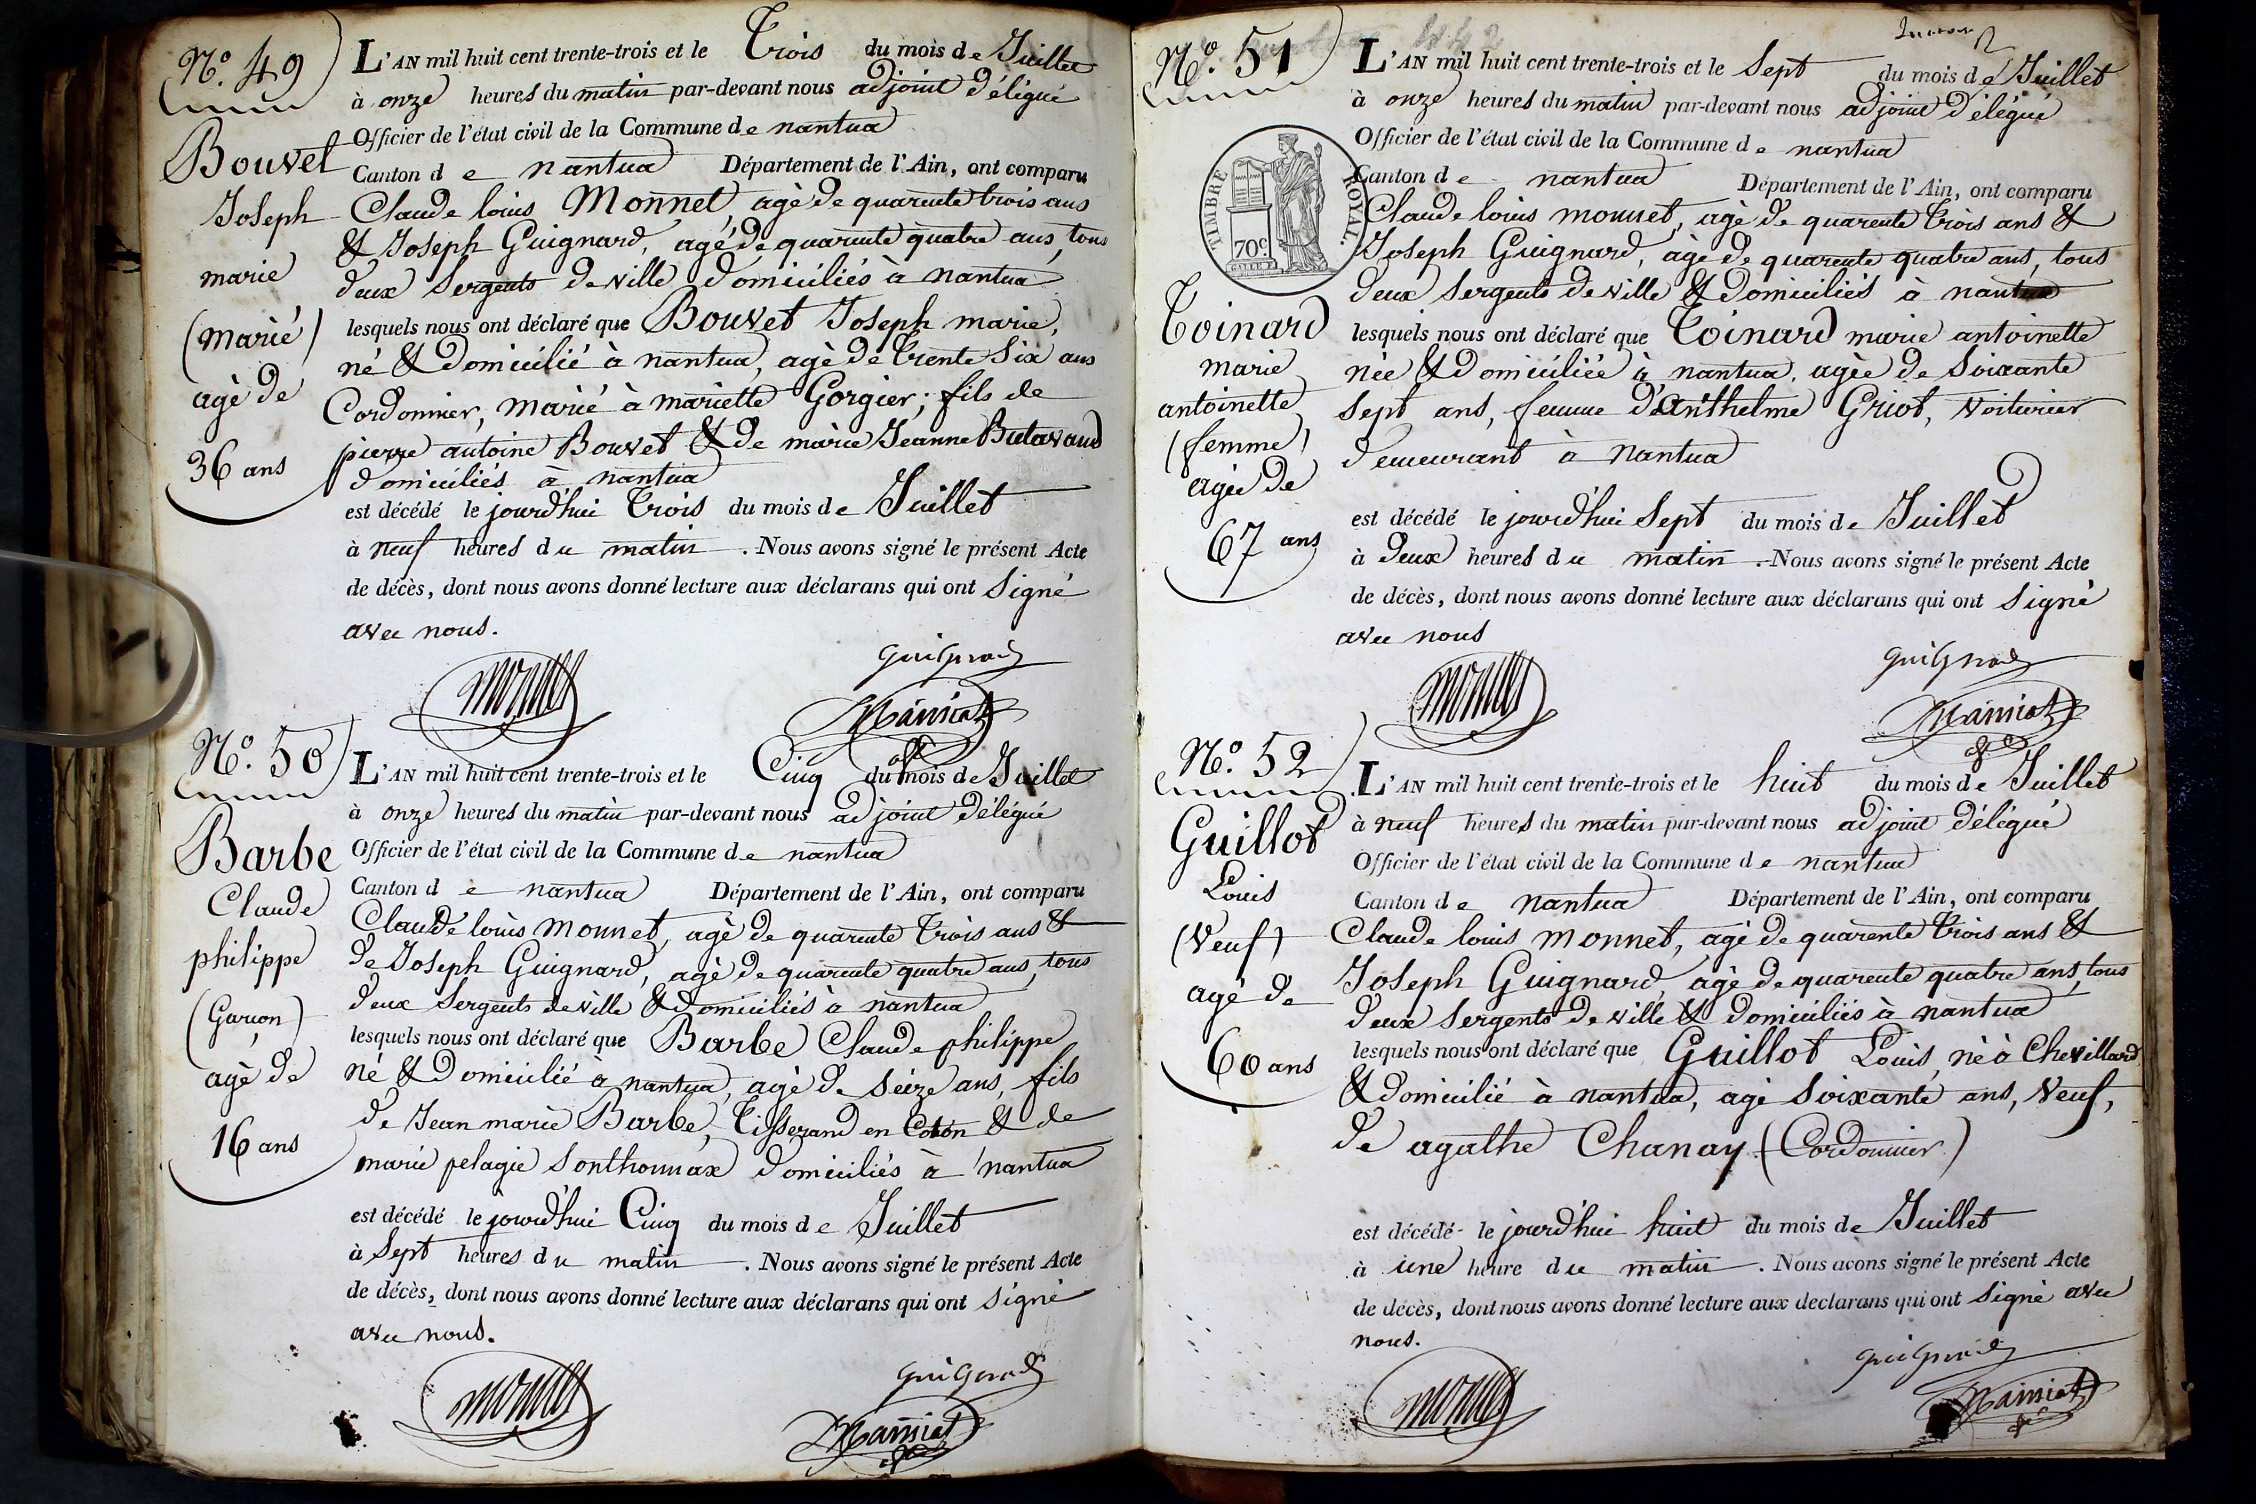 N.º 49
Bouvet
Joseph
marie
(marié)
agè de
36 ans
L'AN mil huit cent trente-trois et le Trois du mois de Juillet
à onze heures du matin par-devant nous adjoint délégué
Officier de l'état civil de la Commune de nantua
Canton de nantua Département de l'Ain, ont comparu
Claude louis Monnet, agè de quarente trois ans
& Joseph Guignard, agé de quarente quatre ans, tous
deux Sergents de ville domiciliés à nantua
lesquels nous ont déclaré que Bouvet Joseph marie,
né & domicilié à nantua, agè de trente Six ans
Cordonnier, marié à mariette Gorgier; fils de
pierre antoine Bouvet & de marie Jeanne Butavand
domiciliés à nantua
est décédé le jourd'hui Trois du mois de Juillet
à neuf heures du matin. Nous avons signé le présent Acte
de décès, dont nous avons donné lecture aux déclarans qui ont Signé
avec nous.
monnet
Guignard
N.º 50
Barbe
Claude
philippe
(Garçon)
agè de
16 ans
L'AN mil huit cent trente-trois et le Cinq du mois de Juillet
à onze heures du matin par-devant nous adjoint délégué
Officier de l'état civil de la Commune de nantua
Canton de nantua Département de l'Ain, ont comparu
Claude louis monnet, agè de quarente trois ans &
de Joseph Guignard, agè de quarente quatre ans, tous
deux Sergents de ville & domiciliés à nantua
lesquels nous ont déclaré que Barbe Claude philippe
né & domicilié à nantua, agè de Seize ans, fils
de Jean marie Barbe, Tisserand en Coton & de
marie pelagie Sonthonnax domiciliés à nantua
est décédé le jourd'hui Cinq du mois de Juillet
à Sept heures du matin. Nous avons signé le présent Acte
de décès, dont nous avons donné lecture aux déclarans qui ont Signé
avec nous.
monnet
Guignard
N.º 51
TIMBRE ROYAL.
70c.
Toinard
marie
antoinette
(femme)
agée de
67 ans
L'AN mil huit cent trente-trois et le Sept du mois de Juillet
à onze heures du matin par-devant nous adjoint délégué
Officier de l'état civil de la Commune de nantua
Canton de nantua Département de l'Ain, ont comparu
Claude louis monnet, agè de quarente trois ans &
Joseph Guignard, agè de quarente quatre ans, tous
deux Sergents de ville & domiciliés à nantua
lesquels nous ont déclaré que Toinard marie antoinette
née & domiciliée à nantua, agée de Soixante
Sept ans, femme d'anthelme Griot, Voiturier
demeurant à nantua
est décédé le jourd'hui Sept du mois de Juillet
à deux heures du matin. Nous avons signé le présent Acte
de décès, dont nous avons donné lecture aux déclarans qui ont Signé
avec nous
monnet
Guignard
N.º 52
Guillot
Louis
(Veuf)
agé de
60 ans
L'AN mil huit cent trente-trois et le huit du mois de Juillet
à neuf heures du matin par-devant nous adjoint délégué
Officier de l'état civil de la Commune de nantua
Canton de nantua Département de l'Ain, ont comparu
Claude louis monnet, agé de quarente trois ans &
Joseph Guignard, agè de quarente quatre ans, tous
deux Sergents de ville & domiciliés à nantua
lesquels nous ont déclaré que Guillot Louis, né à Chevillard
& domicilié à nantua, agé Soixante ans, Veuf,
de agathe Chanay (Cordonnier)
est décédé le jourd'hui huit du mois de Juillet
à une heure du matin. Nous avons signé le présent Acte
de décès, dont nous avons donné lecture aux declarans qui ont Signé avec
nous.
monnet
Guignard